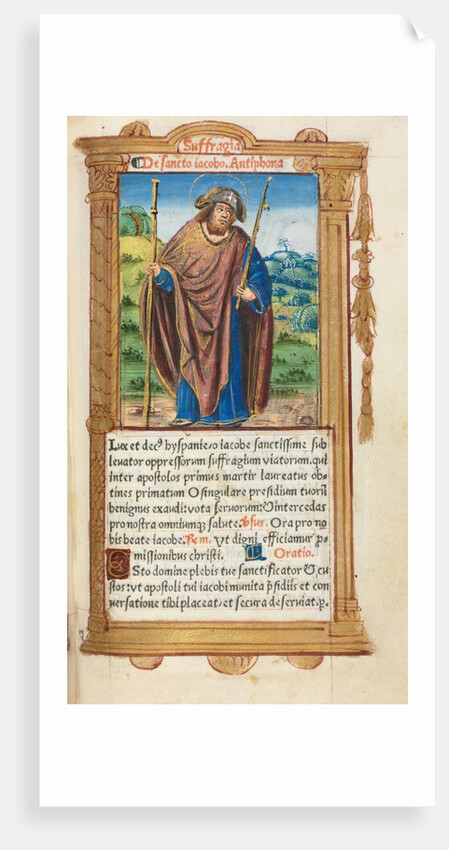 Suffragia
De sancto iacobo. Antiphona
Lux et decꝰ hyspanie/o iacobe sanctissime sub
leuator oppressorum suffragium viatorum. qui
inter apostolos primus martir laureatus ob-
tines primatum O singulare presidium tuorũ
benignus exaudi: vota seruorum: et intercedas
pro nostra omniumqꝫ salute. Vsus. Ora pro no
bis beate iacobe. Rem. Vt digni efficiamur p̱-
missionibus christi. Oratio.
ESto domine plebis tue sanctificator et cu
stos: vt apostoli tui iacobi munita p̃sidiis et con
uersatione tibi placeat: et secura deseruiat. p.